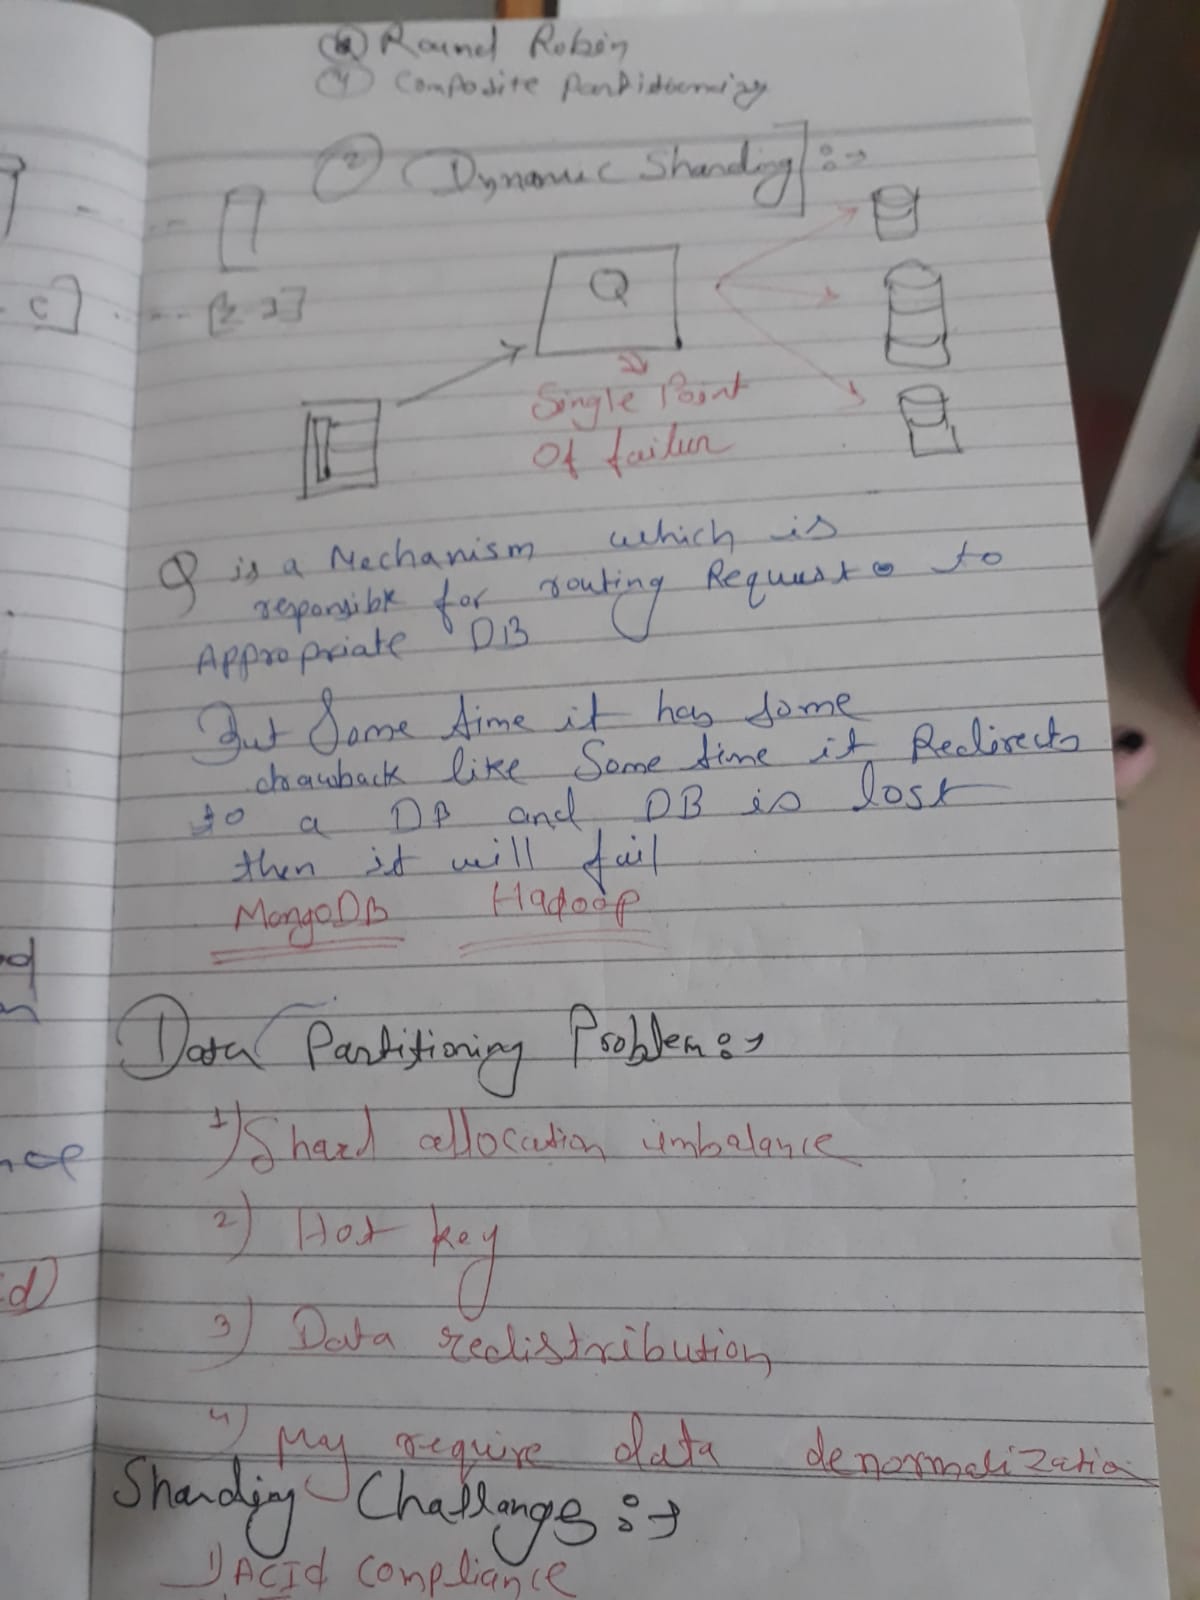 Round Robin
4) Composite Partitioning
2) Dynamic Sharding :→
c] [2 3]
Q
Single Point
Of failur
Q is a Mechanism which is
responsible for routing Request to
Appropriate DB
But Some time it has some
drawback like Some time it Redirects
to a DB and DB is lost
then it will fail
MongoDB Hadoop
Data Partitioning Problem :→
1) Shard allocation imbalance
2) Hot key
3) Data redistribution
4) May require data denormalization
Sharding Challanges :→
1) ACID Compliance